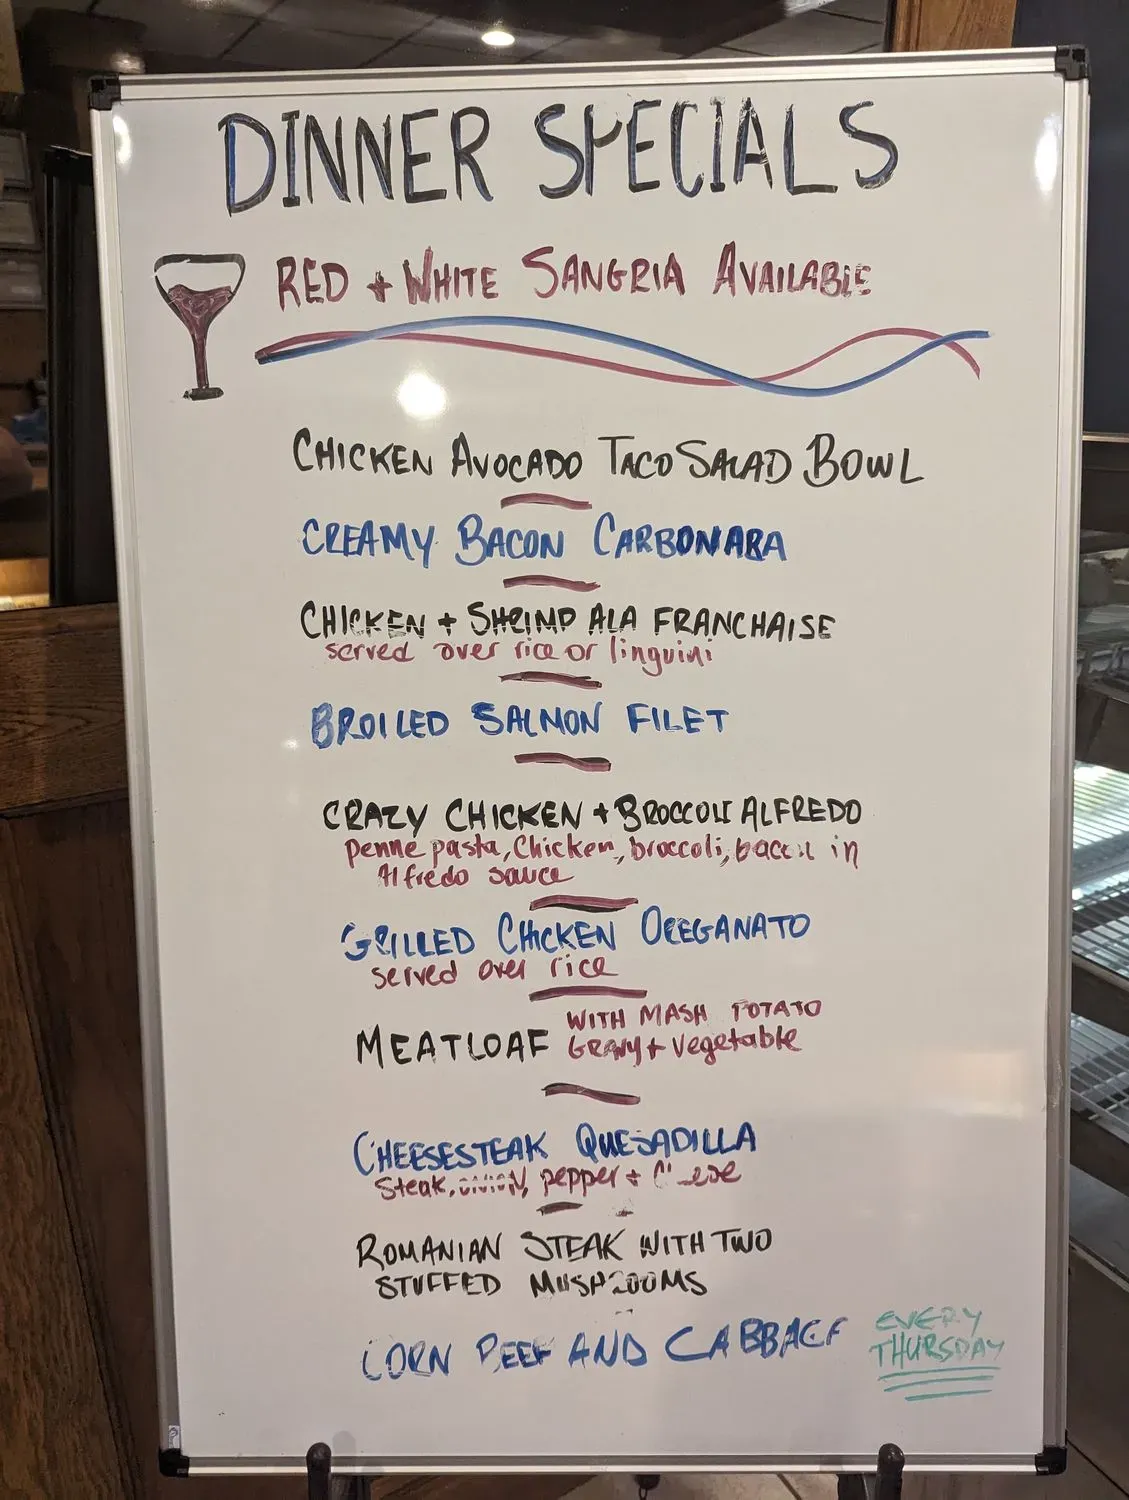 DINNER SPECIALS
RED + WHITE SANGRIA AVAILABLE
CHICKEN AVOCADO TACO SALAD BOWL
CREAMY BACON CARBONARA
CHICKEN + SHRIMP ALA FRANCHAISE
served over rice or linguini
BROILED SALMON FILET
CRAZY CHICKEN + BROCCOLI ALFREDO
penne pasta, Chicken, broccoli, bacon in
Alfredo sauce
GRILLED CHICKEN OREGANATO
served over rice
MEATLOAF WITH MASH POTATO
GRAVY + vegetable
CHEESESTEAK QUESADILLA
Steak, ONION, pepper +
ROMANIAN STEAK WITH TWO
STUFFED MUSHROOMS
CORN BEEF AND CABBAGE EVERY
THURSDAY